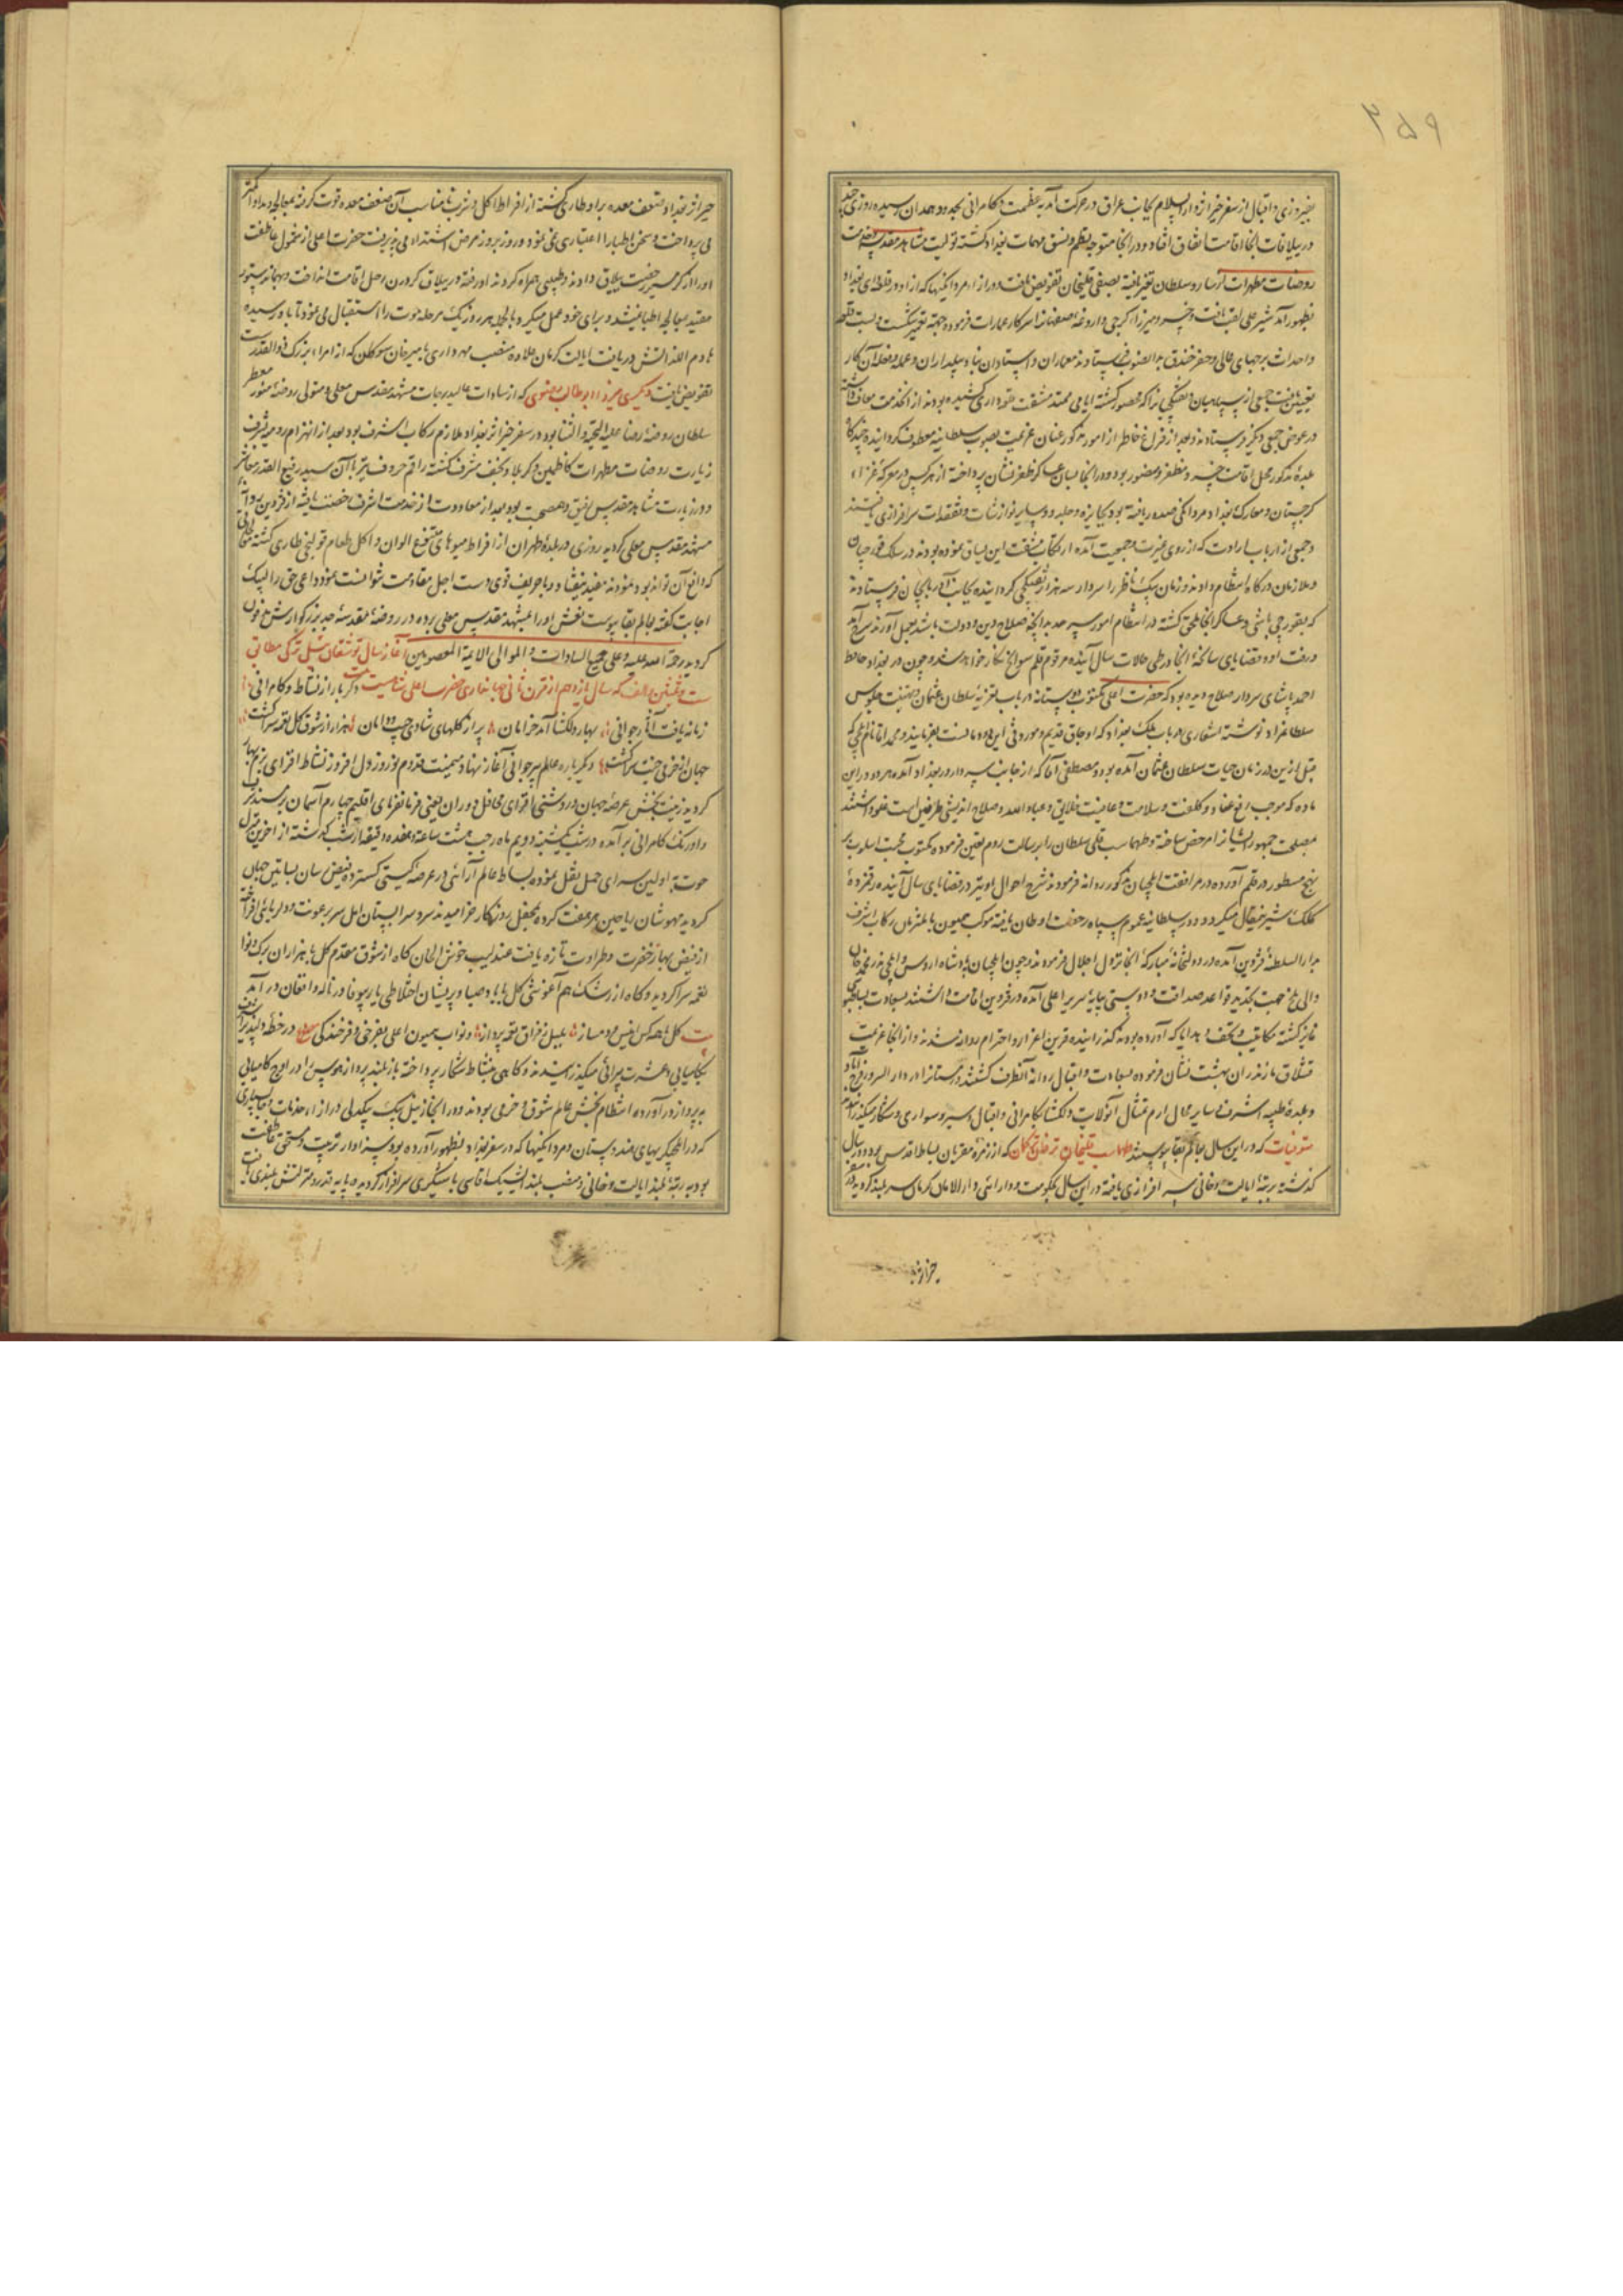 ۲۵۹
بفیروزی و اقبال از سفر خیر از دار السلام بجانب عراق در حرکت آمد به عظمت و کامرانی بحدود همدان رسیده روزی چند
در ییلاقات آنجا اقامت اتفاق افتاد و در آنجا متوجه نظم و نسق مهمات بغداد گشته تولیت مشاهد مقدسه
روضات مطهرات سلطان تغیر یافته بصفی قلیخان تفویض یافت و از مردانگیها که از او در قلعه‌داری بغداد
بظهور آمد شیر علی لقب یافت و خسرو میرزا گرجی داروغه اصفهان را سرکار عمارات فرموده جهة تعمیر شکست و بست قلعه
و احداث برجهای عالی و حفر خندق بدانصوب فرستادند معماران و استادان بنا و بیلداران و عمله و فعله آن کار
تعیین یافت جمعی از سپاهیان و تفنگچی را که محصور گشته ایامی ممتد مشقت قلعه‌داری کشیده بودند از آنخدمت معاف داشته
در عوض جمعی دیگر فرستادند و بعد از فراغ خاطر از امور مذکور عنان عزیمت بصوب سلطانیه معطوف گردانیده چندگاه
بلده مذکور محل اقامت خسرو مظفر و منصور بود و در آنجا بسان عساکر ظفر نشان پرداخته از هر کس در معرکه غزا
گرجستان و معارک بغداد مردانگی صدور یافته بود بجایزه و جلدو و سایر نوازشات و تفقدات سرافرازی یافتند
و جمعی از ارباب ارادت که از روی غیرت و حمیت آمده ارتکاب مشقت این یساق نموده بودند در سلک قورچیان
و ملازمان درگاه انتظام دادند و زمان بیک ناظر را سردار سه هزار تفنگچی گردانیده بجانب آذربایجان فرستادند
که بقورچی باشی و عساکر آنجا ملحق گشته در انتظام امور سرحد بدانچه صلاح دین و دولت باشد بعمل آورند
و رفت او و قضایای سانحه آنجا در طی حالات سال آینده مرقوم قلم سوانح نگار خواهد شد و چون در بغداد حافظ
احمد پاشای سردار صلاح دیده بود که حضرت اعلی مکتوب دوستانه در باب تعزیه سلطان عثمان و تهنیت جلوس
سلطان مراد نوشته اشعاری در باب ملک بغداد که اوجاق قدیم و موروثی این دودمانست بفرمایند و محمد آقا نام ایلچی که
قبل ازین در زمان حیات سلطان عثمان آمده بود و مصطفی آقا که از جانب سردار در بغداد آمده هر دو در این
ماده که موجب رفع عناد و کلفت و سلامت و عافیت خلایق و عباد الله و صلاح اندیشی طرفین است
مصلحت جمهور ایشان را مرخص ساخته و طهماسب قلی سلطان را برسالت روم تعین فرموده مکتوب محبت اسلوب بر
نهج مسطور در قلم آورده در مرافقت ایلچیان مذکور روانه فرمودند شرح احوال او نیز در قضایای سال آینده رقمزده
کلک شیرین مقال میگردد و در سلطانیه عموم سپاه رخصت اوطان یافته موکب همیون با ملتزمان رکاب اشرف
بدار السلطنه قزوین آمده در دولتخانه مبارکه آنجا نزول اجلال فرمودند و چون ایلچیان پادشاه اروس و ایلچی نذر محمد خان
والی بلخ جهت تجدید قواعد صداقت و دوستی بپایه سریر اعلی آمده در قزوین اقامت داشتند بسعادت بساطبوسی
فایز گشته مکاتیب و تحف و هدایا که آورده بودند گذرانیده قرین اعزاز و احترام روانه شدند و از آنجا عزیمت
قشلاق مازندران بهشت نشان فرموده بسعادت و اقبال روانه آنطرف گشتند و زمستان را در دار السرور فرح آباد
و بلده طیبه اشرف و سایر محال ارم تمثال آنولایت دلگشا بکامرانی و اقبال و سیر و سواری و شکار میگذرانیدند
متوفیات که در این سال بعالم بقا پیوستند طهماسب قلیخان ترخان ترکمان که از زمره مقربان بساط اقدس بود و در سال
گذشته برتبه ایالت و خانی سرافرازی یافته در این سال بحکومت و دارائی دار الامان کرمان سربلند گردیده در سفر
خیر اثر
خیر اثر بغداد ضعف معده بر او طاری گشته از افراط اکل و شرب نامناسب آن ضعف معده قوت گرفته بمعالجه و مداوا کمتر
می پرداخت و سخن اطبا را اعتباری نمی نمود و روز بروز مرض اشتداد می پذیرفت حضرت اعلی از شمول عاطفت
او را از گرمسیر رخصت ییلاق دادند و طبیبی همراه کردند او رفته در ییلاق رحل اقامت انداخت و همچنان بدستور
مقید بمعالجه اطبا نمیشد و برای خود عمل میکرد بالجمله هر روز یک مرحله موت را استقبال می نمود تا باو رسیده
هادم اللذاتش دریافت ایالت کرمان علاوه منصب مهرداری بامیر خان سوکلن که از امراء بزرگ ذوالقدر است
تفویض یافت دیگری میرزا ابوطالب رضوی که از سادات عالیدرجات مشهد مقدس معلی و متولی روضه منور معطر
سلطان روضه رضا علیه التحیه و الثنا بود در سفر خیر اثر بغداد ملازم رکاب اشرف بود بعد از انهزام رومیه بشرف
زیارت روضات مطهرات کاظمین و کربلا و نجف مشرف گشته راقم حروف نیز با آن سید رفیع القدر معاشر
و در زیارت مشاهد مقدس رفیق و همصحبت بود بعد از معاودت از خدمت اشرف رخصت یافته از قزوین روانه
مشهد مقدس معلی گردید روزی در بلده طهران از افراط میوهای متنوع الالوان و اکل طعام قولنجی طاری گشته
که دافع آن تواند بود نمودند مفید نیفتاد و با حریف قوی دست اجل مقاومت نتوانست نمود داعی حق را لبیک
اجابت گفته بعالم بقا پیوست نعش او را بمشهد مقدس معلی برده در روضه مقدسه جد بزرگوارش مدفون
گردید رحمة الله علیه و علی جمیع السادات و الموالی الائمة المعصومین آغاز سال توشقان ئیل ترکی مطابق
ست و ثلثین و الف که سال یازدهم از قرن ثانی جهانداری حضرت اعلی شاهیست دگر بار از نشاط و کامرانی
زمانه یافت آثار جوانی بهار دلگشا آمد خرامان پر از گلهای شادی جیب و دامان هزار از شوق گل نغمه سرا گشت
جهان از خرمی جنت سرا گشت دیگر باره عالم پیر جوانی آغاز نهاد و بمیمنت قدوم نوروز دل افروز نشاط افزای بزم بهار
گردید زینت بخش عرصه جهان و روشنی افزای محافل دوران یعنی فرمانفرمای اقلیم چهارم آسمان بر مسند
و اورنگ کامرانی برآمده در شب یکشنبه دویم ماه رجب هشت ساعت و هفده دقیقه از شب گذشته از آخرین منزل
حوت به اولین سرای حمل نقل نموده بساط عالم آرائی در عرصه گیتی گسترده فیض سان بساتین جهان
گردید مهوشان ریاحین بهر هفت کرده بمحفل روزگار خرامیدند سرو سرابستان امل سر برعونت و دلربائی افراخت
از فیض بهار خضرت و طراوت تازه یافت عندلیب خوش الحان گاه از شوق مقدم گل با هزاران برگ و نوا
نغمه سرا گردید و گاه از رشک هم آغوشی گل با باد صبا و پریشان اختلاطی یار بیوفا در ناله و افغان درآمد
بیت گل با همه کس انیس و دمساز بلبل ز فراق نغمه پرداز و نواب همیون اعلی بفرخی و فرخندگی در خطه دلپذیر
بکامیابی و عشرت پیرائی میگذرانیدند و گاهی بنشاط شکار پرداخته باز بلند پرواز هوس را در اوج کامیابی
به پرواز در آورده انتظام بخش عالم شوق و خرمی بودند و در آنجا زینل بیک بیگدلی را از خدمات و جانسپاری
که در ایلچیگریهای هندوستان و مردانگیها که در سفر بغداد بظهور آورده بود سزاوار تربیت و مستحق عاطفت
بود به رتبه بلند ایالت و خانی و منصب بلند ایشیک آقاسی باشیگری سرافراز گردیده و پایه قدر و منزلتش بلندی یافت